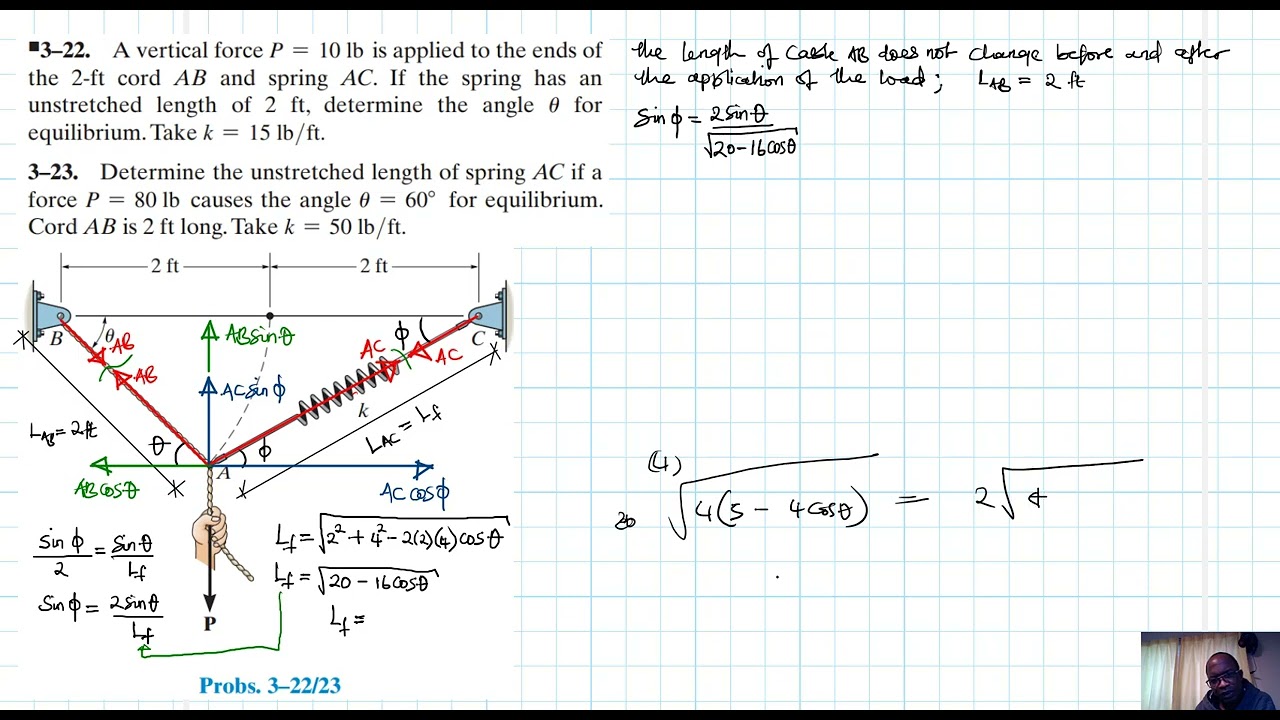 3–22. A vertical force P = 10 lb is applied to the ends of
the 2-ft cord AB and spring AC. If the spring has an
unstretched length of 2 ft, determine the angle θ for
equilibrium. Take k = 15 lb/ft.
3–23. Determine the unstretched length of spring AC if a
force P = 80 lb causes the angle θ = 60° for equilibrium.
Cord AB is 2 ft long. Take k = 50 lb/ft.
2 ft
2 ft
B
θ
AB
AB
ABsinθ
ACsinϕ
AC
AC
ϕ
C
k
L_AB = 2ft
L_AC = L_f
θ
ϕ
A
ABcosθ
ACcosϕ
P
sinϕ/2 = sinθ/L_f
Sinϕ = 2sinθ/L_f
L_f = √(2² + 4² - 2(2)(4)cosθ)
L_f = √(20 - 16cosθ)
L_f =
Probs. 3–22/23
the length of cable AB does not change before and after
the application of the load; L_AB = 2 ft
Sinϕ = 2sinθ/√(20-16cosθ)
(4)
√(4(5 - 4cosθ)) = 2√4